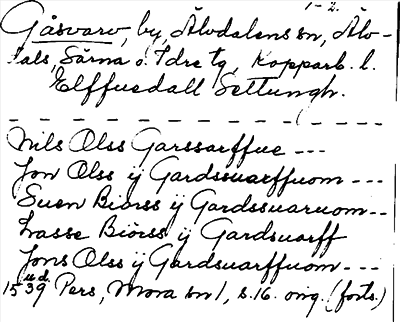 1-2.
Gåsvarv, by, Älvdalens sn, Älv-
dals, Särna o. Idre tg, Kopparb. l.
Elffuedall Settungh.
Nils Olss Garssarffue ---
Jon Olss ÿ Gardssuarffuom ---
Suen Biörss ÿ Gardssuaruom --
Lasse Biörss ÿ Gardsuarff
Jons Olss ÿ Gardsuarffuom ---
1539 u.d. Pers, Mora sn 1, s. 16. orig. (forts.)